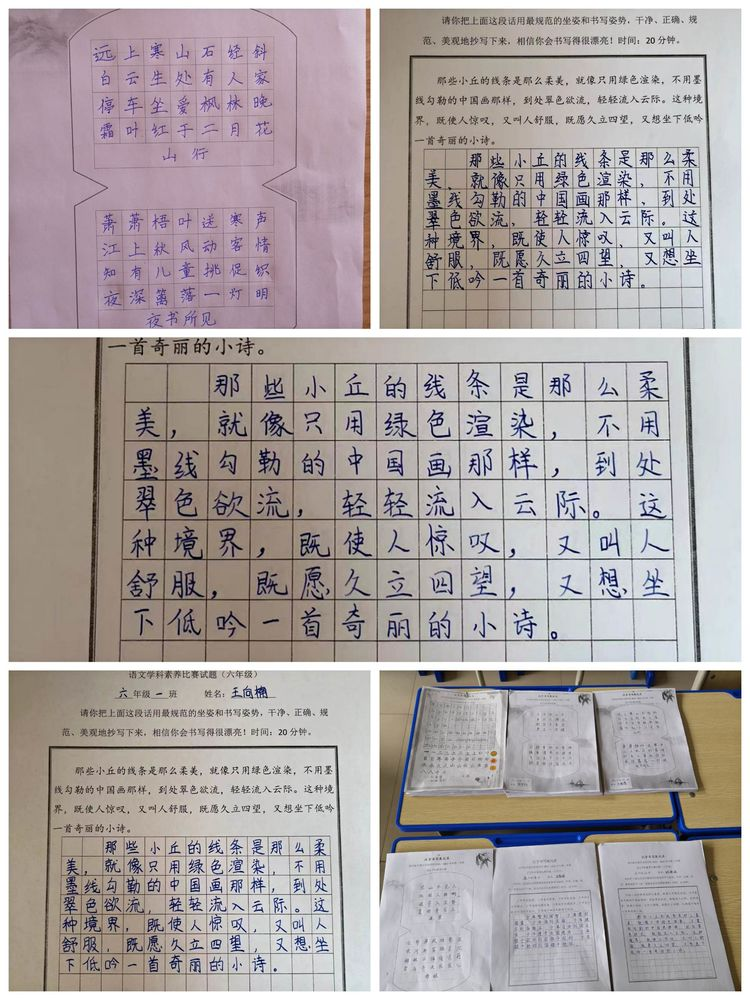 远上寒山石经斜
白云生处有人家
停车坐爱枫林晚
霜叶红于二月花
山行
萧萧梧叶送寒声
江上秋风动客情
知有儿童挑促织
夜深篱落一灯明
夜书所见
请你把上面这段话用最规范的坐姿和书写姿势，干净、正确、规
范、美观地抄写下来，相信你会书写得很漂亮！时间：20分钟。
那些小丘的线条是那么柔美，就像只用绿色渲染，不用墨
线勾勒的中国画那样，到处翠色欲流，轻轻流入云际。这种境
界，既使人惊叹，又叫人舒服，既愿久立四望，又想坐下低吟
一首奇丽的小诗。
那些小丘的线条是那么柔
美，就像只用绿色渲染，不用
墨线勾勒的中国画那样，到处
翠色欲流，轻轻流入云际。这
种境界，既使人惊叹，又叫人
舒服，既愿久立四望，又想坐
下低吟一首奇丽的小诗。
一首奇丽的小诗。
那些小丘的线条是那么柔
美，就像只用绿色渲染，不用
墨线勾勒的中国画那样，到处
翠色欲流，轻轻流入云际。这
种境界，既使人惊叹，又叫人
舒服，既愿久立四望，又想坐
下低吟一首奇丽的小诗。
语文学科素养比赛试题（六年级）
六年级一班 姓名：王向楠
请你把上面这段话用最规范的坐姿和书写姿势，干净、正确、规
范、美观地抄写下来，相信你会书写得很漂亮！时间：20分钟。
那些小丘的线条是那么柔美，就像只用绿色渲染，不用墨
线勾勒的中国画那样，到处翠色欲流，轻轻流入云际。这种境
界，既使人惊叹，又叫人舒服，既愿久立四望，又想坐下低吟
一首奇丽的小诗。
那些小丘的线条是那么柔
美，就像只用绿色渲染，不用
墨线勾勒的中国画那样，到处
翠色欲流，轻轻流入云际。这
种境界，既使人惊叹，又叫人
舒服，既愿久立四望，又想坐
下低吟一首奇丽的小诗。